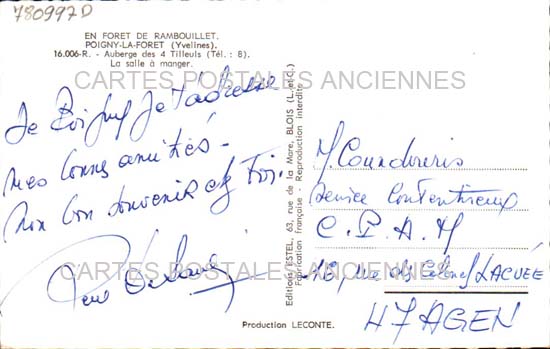 780997D
EN FORET DE RAMBOUILLET.
POIGNY-LA-FORET (Yvelines).
16.006-R. - Auberge des 4 Tilleuls (Tél. : 8).
La salle à manger.
CARTES POSTALES ANCIENNES
De Poigny je t'adresse
mes bonnes amitiés -
mon bon souvenir
Editions ESTEL, 63, rue de la Mare, BLOIS (L.-et-C.)
Fabrication française - Reproduction interdite
M.
Service Contentieux
C. P. A. M
rue du Colonel LACUÉE
47 AGEN
CARTES POSTALES ANCIENNES
Production LECONTE.